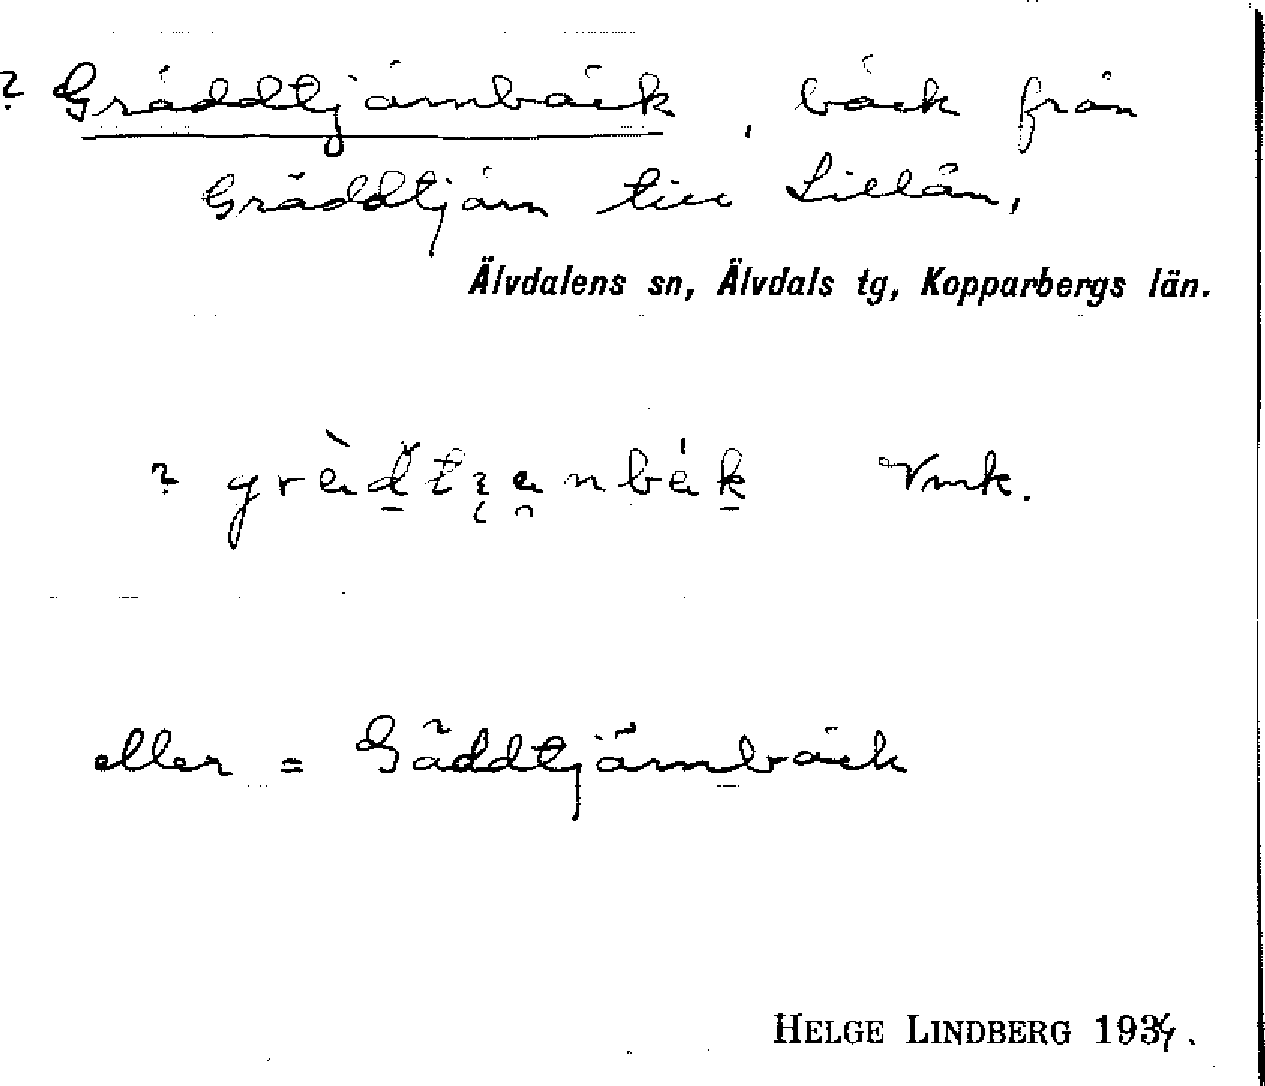 ? Gräddtjärnbäck, bäck från
Gräddtjärn till Lillån,
Älvdalens sn, Älvdals tg, Kopparbergs län.
? Vmk.
eller = Gäddtjärnbäck
HELGE LINDBERG 1934.